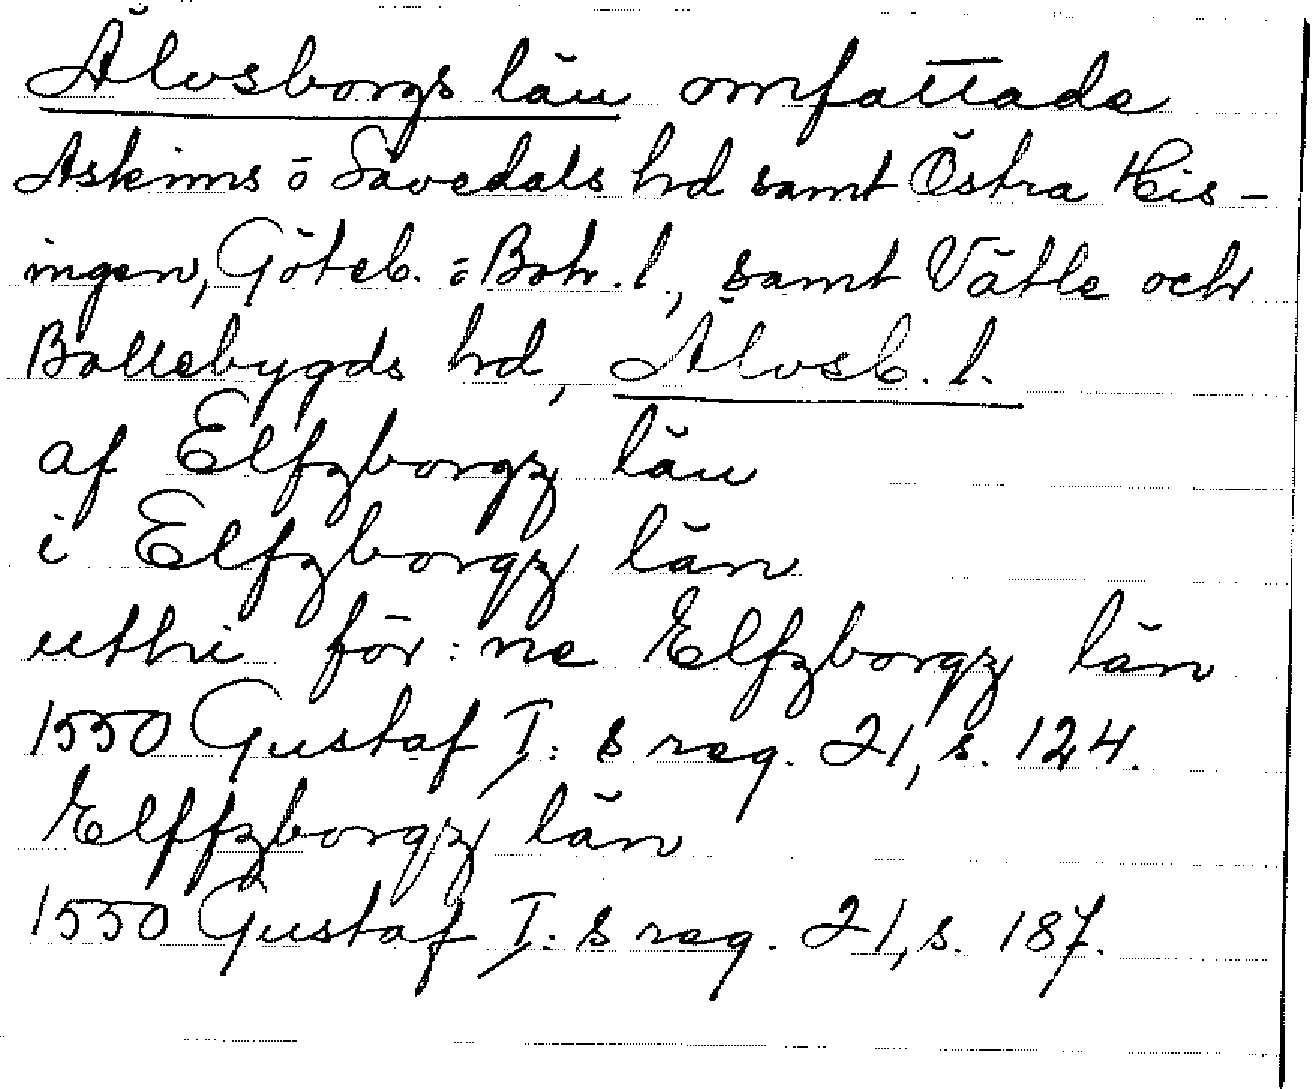 Älvsborgs län omfattade
Askims o Sävedals hd samt Östra His-
ingen, Göteb. o Boh. l., samt Vätle och
Bollebygds hd, Älvsb. l.
af Elfzborgz län
i Elfzborgz län
uthi för:ne Elfzborgz län
1550 Gustaf I:s reg. 21, s. 124.
Elffzborgz län
1550 Gustaf I:s reg. 21, s. 187.